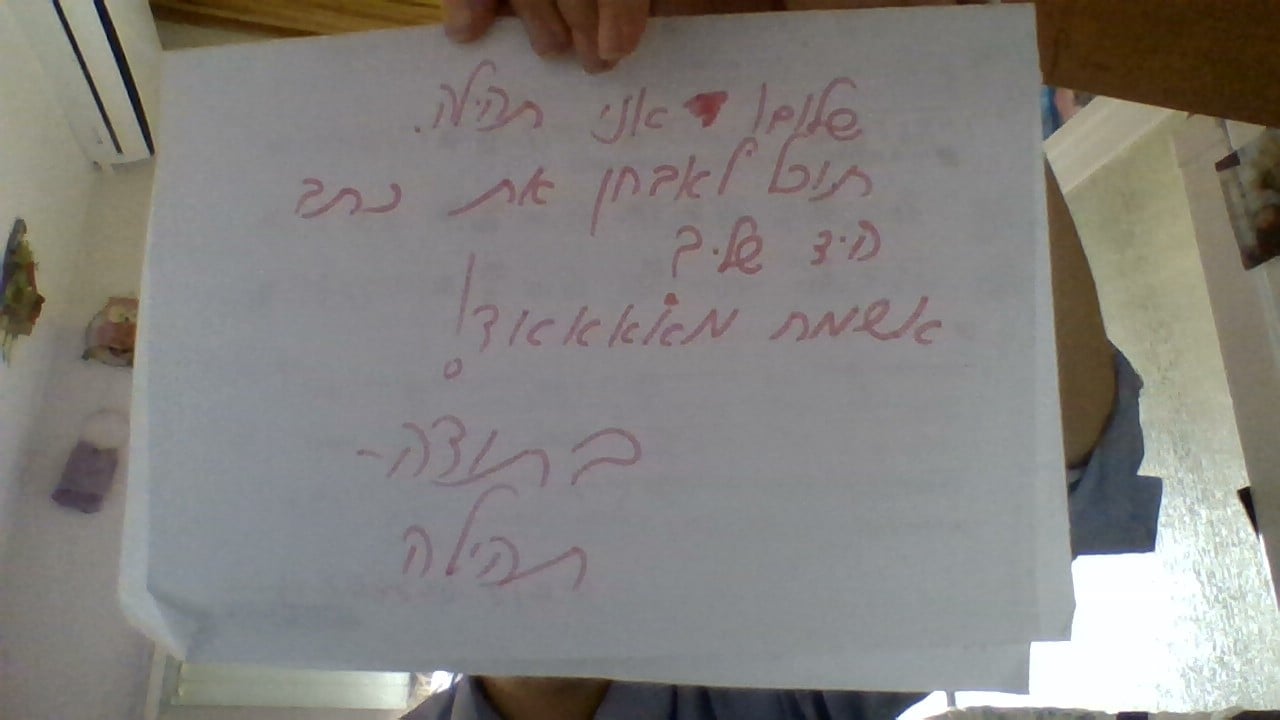 שלום! אני תהילה.
תוכל לאבחן את כתב
היד שלי?
אשמח מאאאאוד!
בתודה-
תהילה